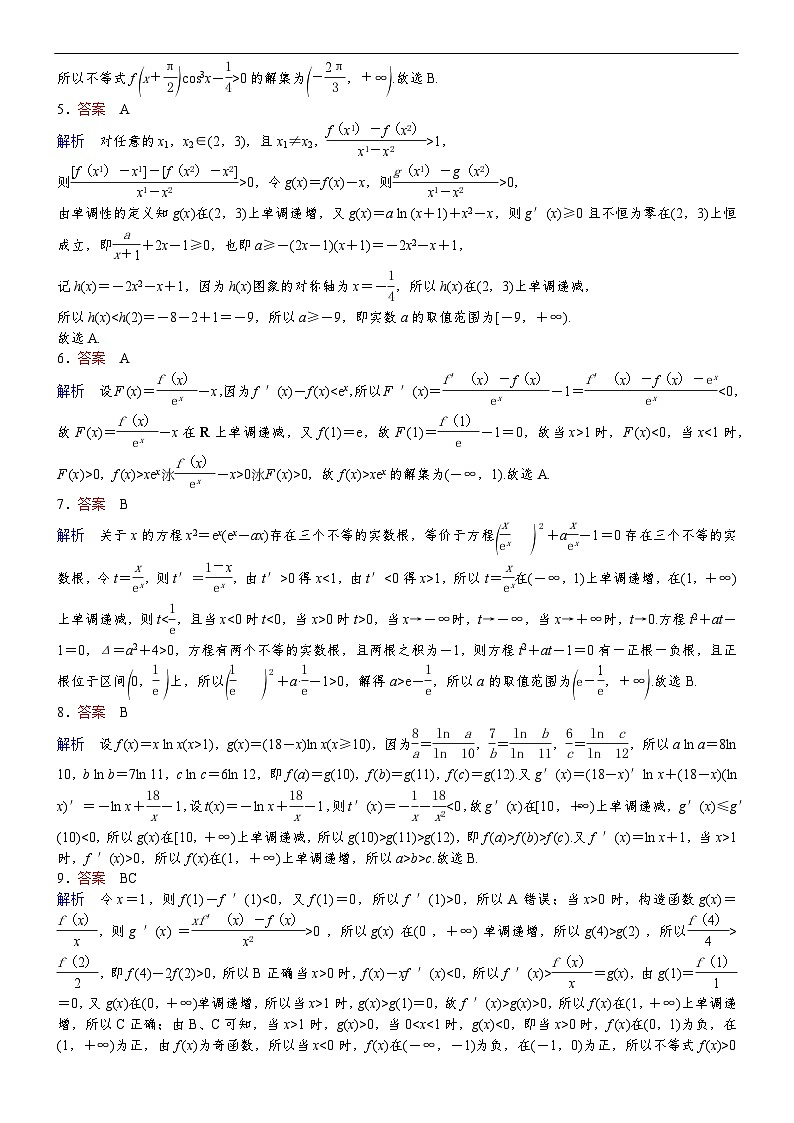 所以不等式 f(x+π/2)cos³x－1/4>0 的解集为(－2π/3，＋∞).故选 B.
5．答案　A
解析　对任意的 x₁，x₂∈(2，3)，且 x₁≠x₂，f（x1）－f（x2）/x1－x2>1，
则[f（x1）－x1]－[f（x2）－x2]/x1－x2>0，令 g(x)＝f(x)－x，则g（x1）－g（x2）/x1－x2>0，
由单调性的定义知 g(x)在(2，3)上单调递增，又 g(x)＝a ln (x＋1)＋x²－x，则 g′(x)≥0 且不恒为零在(2，3)上恒
成立，即a/x＋1＋2x－1≥0，也即 a≥－(2x－1)(x＋1)＝－2x²－x＋1，
记 h(x)＝－2x²－x＋1，因为 h(x)图象的对称轴为 x＝－1/4，所以 h(x)在(2，3)上单调递减，
所以 h(x)<h(2)＝－8－2＋1＝－9，所以 a≥－9，即实数 a 的取值范围为[－9，＋∞).
故选 A.
6．答案　A
解析　设 F(x)＝f（x）/eˣ－x,因为 f ′(x)－f(x)<eˣ,所以 F ′(x)＝f′（x）－f（x）/eˣ－1＝f′（x）－f（x）－eˣ/eˣ<0，
故 F(x)＝f（x）/eˣ－x 在 R 上单调递减，又 f(1)＝e，故 F(1)＝f（1）/e－1＝0，故当 x>1 时，F(x)<0，当 x<1 时，
F(x)>0，f(x)>xeˣ⇔f（x）/eˣ－x>0⇔F(x)>0，故 f(x)>xeˣ 的解集为(－∞，1).故选 A.
7．答案　B
解析　关于 x 的方程 x²＝eˣ(eˣ－ax)存在三个不等的实数根，等价于方程(x/eˣ)²＋a x/eˣ－1＝0 存在三个不等的实
数根，令 t＝x/eˣ，则 t′＝1－x/eˣ，由 t′>0 得 x<1，由 t′<0 得 x>1，所以 t＝x/eˣ在(－∞，1)上单调递增，在(1，＋∞)
上单调递减，则 t<1/e，且当 x<0 时 t<0，当 x>0 时 t>0，当 x→－∞时，t→－∞，当 x→＋∞时，t→0.方程 t²＋at－
1＝0，Δ＝a²＋4>0，方程有两个不等的实数根，且两根之积为－1，则方程 t²＋at－1＝0 有一正根一负根，且正
根位于区间(0，1/e)上，所以(1/e)²＋a·1/e－1>0，解得 a>e－1/e，所以 a 的取值范围为(e－1/e，＋∞).故选 B.
8．答案　B
解析　设 f(x)＝x ln x(x>1)，g(x)＝(18－x)ln x(x≥10)，因为8/a＝ln a/ln 10，7/b＝ln b/ln 11，6/c＝ln c/ln 12，所以 a ln a＝8ln
10，b ln b＝7ln 11，c ln c＝6ln 12，即 f(a)＝g(10)，f(b)＝g(11)，f(c)＝g(12).又 g′(x)＝(18－x)′ln x＋(18－x)(ln
x)′＝－ln x＋18/x－1，设 t(x)＝－ln x＋18/x－1，则 t′(x)＝－1/x－18/x²<0，故 g′(x)在[10，＋∞)上单调递减，g′(x)≤g′
(10)<0，所以 g(x)在[10，＋∞)上单调递减，所以 g(10)>g(11)>g(12)，即 f(a)>f(b)>f(c).又 f ′(x)＝ln x＋1，当 x>1
时，f ′(x)>0，所以 f(x)在(1，＋∞)上单调递增，所以 a>b>c.故选 B.
9．答案　BC
解析　令 x＝1，则 f(1)－f ′(1)<0，又 f(1)＝0，所以 f ′(1)>0，所以 A 错误；当 x>0 时，构造函数 g(x)＝
f（x）/x，则 g ′(x) ＝xf′（x）－f（x）/x²>0 ，所以 g(x) 在(0 ，＋∞) 单调递增，所以 g(4)>g(2) ，所以f（4）/4>
f（2）/2，即 f(4)－2f(2)>0，所以 B 正确当 x>0 时，f(x)－xf ′(x)<0，所以 f ′(x)>f（x）/x＝g(x)，由 g(1)＝f（1）/1
＝0，又 g(x)在(0，＋∞)单调递增，所以当 x>1 时，g(x)>g(1)＝0，故 f ′(x)>g(x)>0，所以 f(x)在(1，＋∞)上单调递
增，所以 C 正确；由 B、C 可知，当 x>1 时，g(x)>0，当 0<x<1 时，g(x)<0，即当 x>0 时，f(x)在(0，1)为负，在
(1，＋∞)为正，由 f(x)为奇函数，所以当 x<0 时，f(x)在(－∞，－1)为负，在(－1，0)为正，所以不等式 f(x)>0